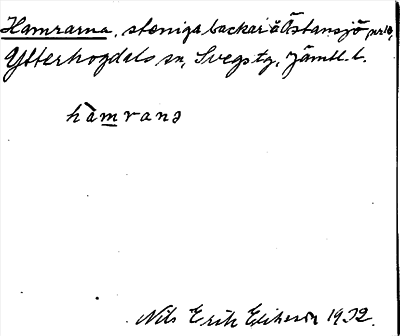 Hamrarna, steniga backar å Östansjö nr 10,
Ytterhogdals sn, Svegs tg, Jämtl. l.
hàmrana
Nils Erik Eliasson 1932.